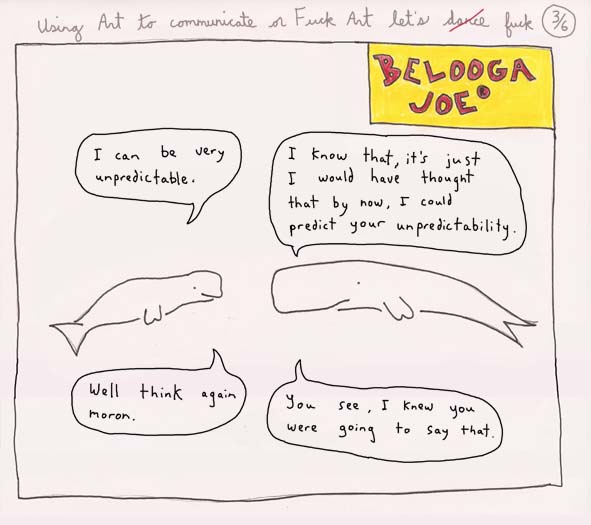 Using Art to communicate or Fuck Art let's dance fuck 3/6
BELOOGA
JOE®
I can be very
unpredictable.
I know that, it's just
I would have thought
that by now, I could
predict your unpredictability.
Well think again
moron.
You see, I knew you
were going to say that.